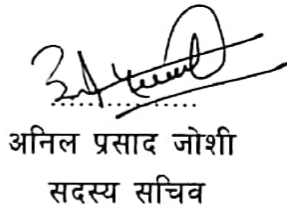 अनिल प्रसाद जोशी
सदस्य सचिव